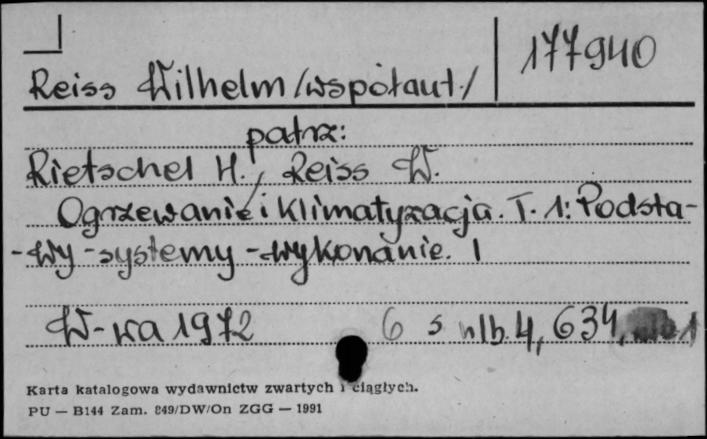 177940
Reiss Wilhelm /współaut./
patrz:
Rietschel H., Reiss W.
Ogrzewanie i klimatyzacja. T. 1: Podsta-
-wy - systemy - wykonanie. 1
W-wa 1972 6 s nlb. 4, 634, nlb 1
Karta katalogowa wydawnictw zwartych i ciągłych.
PU — B144 Zam. 849/DW/On ZGG — 1991